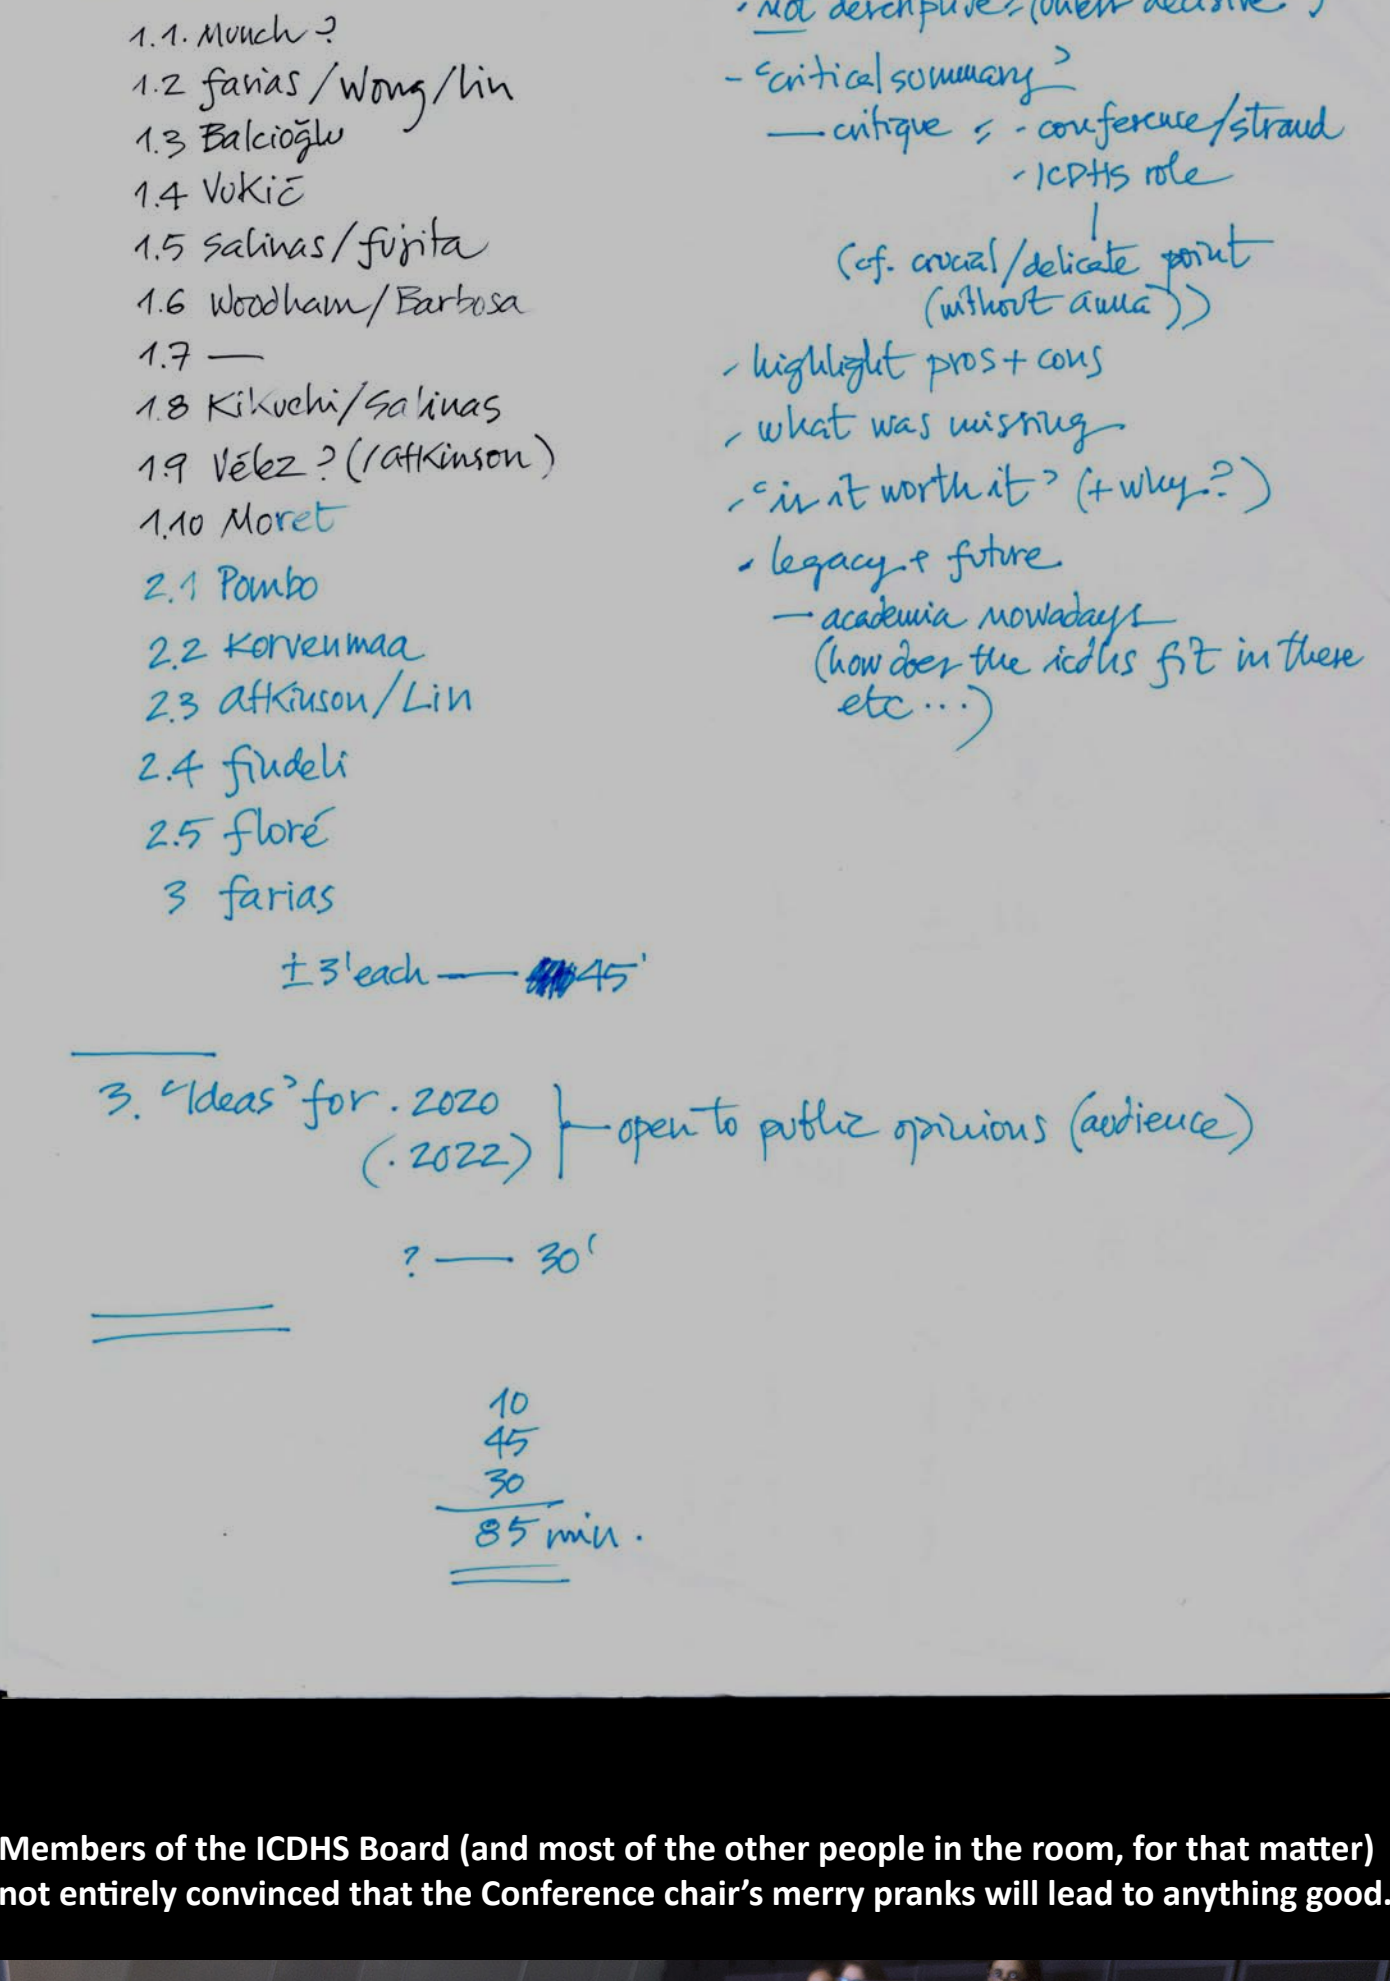 1.1. Munch?
1.2 farias/Wong/Lin
1.3 Balcioğlu
1.4 Vukić
1.5 Salinas/fujita
1.6 Woodham/Barbosa
1.7 —
1.8 Kikuchi/Salinas
1.9 Vélez? (/atkinson)
1.10 Moret
2.1 Pombo
2.2 Korvenmaa
2.3 atkinson/Lin
2.4 findeli
2.5 floré
3 farias
±3' each — 45'
· Not descriptive
- "critical summary"
— critique - conference/strand
- ICDHS role
(cf. crucial/delicate point
(without anna))
- highlight pros + cons
- what was missing
- "is it worth it" (+ why?)
- legacy + future
— academia nowadays
(how does the icdhs fit in there
etc...)
3. "Ideas" for · 2020
(· 2022)
open to public opinions (audience)
? — 30'
10
45
30
85 min.
Members of the ICDHS Board (and most of the other people in the room, for that matter)
not entirely convinced that the Conference chair's merry pranks will lead to anything good.